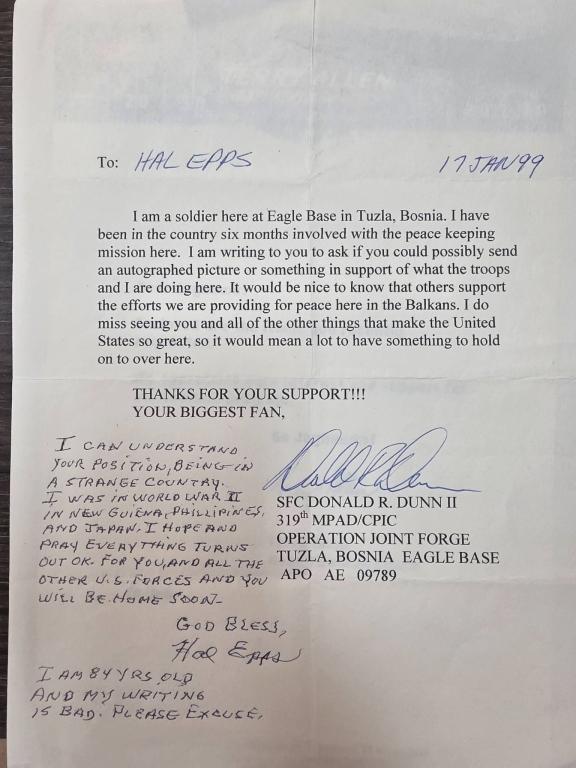 To: HAL EPPS 17 JAN 99
I am a soldier here at Eagle Base in Tuzla, Bosnia. I have
been in the country six months involved with the peace keeping
mission here. I am writing to you to ask if you could possibly send
an autographed picture or something in support of what the troops
and I are doing here. It would be nice to know that others support
the efforts we are providing for peace here in the Balkans. I do
miss seeing you and all of the other things that make the United
States so great, so it would mean a lot to have something to hold
on to over here.
THANKS FOR YOUR SUPPORT!!!
YOUR BIGGEST FAN,
Donald R Dunn
SFC DONALD R. DUNN II
319th MPAD/CPIC
OPERATION JOINT FORGE
TUZLA, BOSNIA EAGLE BASE
APO AE 09789
I CAN UNDERSTAND
YOUR POSITION, BEING IN
A STRANGE COUNTRY.
I WAS IN WORLD WAR II
IN NEW GUIENA, PHILLIPINES,
AND JAPAN. I HOPE AND
PRAY EVERYTHING TURNS
OUT OK. FOR YOU, AND ALL THE
OTHER U.S. FORCES AND YOU
WILL BE HOME SOON-
GOD BLESS,
Hal Epps
I AM 84 YRS OLD
AND MY WRITING
IS BAD. PLEASE EXCUSE.